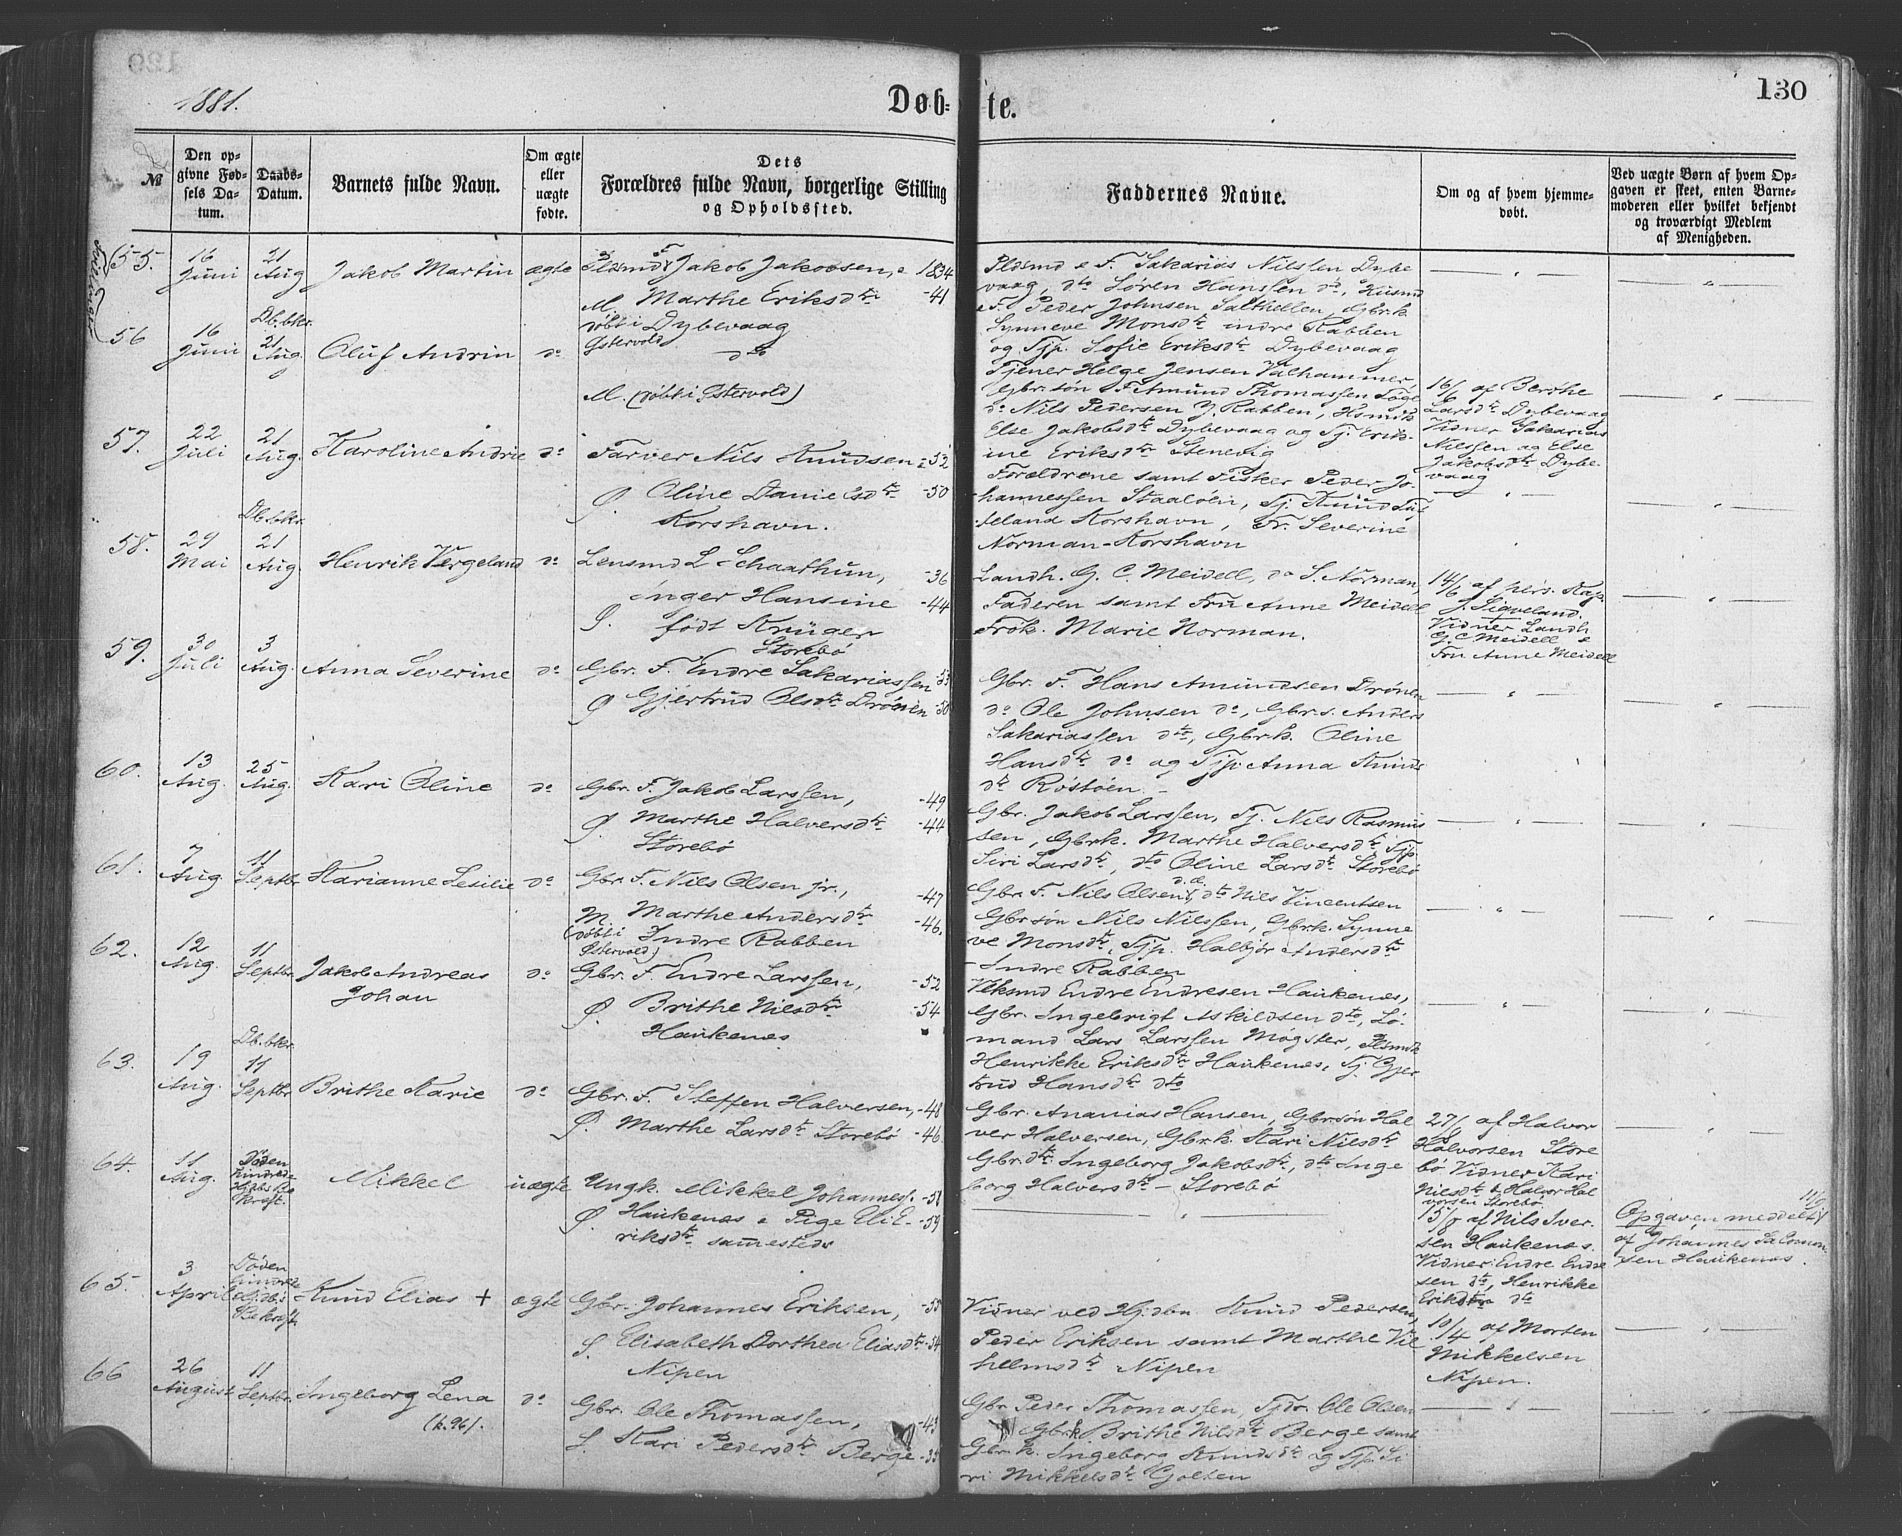 1881.
Døb-
te.
130
№
Den op-
givne Fød-
sels Da-
tum.
Daabs-
Datum.
Barnets fulde Navn.
Om ægte
eller
uægte
fødte.
Dets
Forældres fulde Navn, borgerlige Stilling
og Opholdssted.
Faddernes Navne.
Om og af hvem hjemme-
døbt.
Ved uægte Børn af hvem Op-
gaven er skeet, enten Barne-
moderen eller hvilket bekjendt
og troværdigt Medlem
af Menigheden.
Tvillinger
55.
16
Juni
21
Aug
Jakob Martin
ægte
Jakob Jakobsen, e 1834
M. Marthe Eriksdtr -41
døbt i Dybevaag
Østervold
Plsmd e F. Sakarias Nilssen Dybe
vaag, dto Søren Hanssen do, Husmd
e F. Peder Johnsen Salthellen, Gbrk.
Synneve Monsdtr indre Rabben
og Tjp. Sofie Eriksdtr Dybevaag
56
16
Juni
Db.bkr.
21
Aug.
Oluf Andrin
do
dto
M. (døbt i Østervold)
Tjener Helge Jensen Valhammer,
Gbr. søn F. Amund Thomassen
do Nils Pedersen Y. Rabben, Hsmdk
Else Jakobsdtr Dybevaag og Tj. Erik-
ine Eriksdtr Stenevig
16/6 af Berthe
Larsdtr Dybevaag
Vidner Sakarias
Nilssen og Else
Jakobsdtr Dybe-
vaag
57.
22
Juli
21
Aug.
Karoline Andrie
do
Farver Nils Knudsen e -52
Ø. Oline Danielsdtr -50
Korshavn.
Forældrene samt Fisker Peder Jo-
hannessen Staaløen, Tj. Knud
Korshavn, Fr. Severine
Norman-Korshavn
58.
29
Mai
Db.bkr.
21
Aug
Henrik Vergeland
do
Lensmd L Schaathun, -36
Inger Hansine -44
S. født Krüger
Storebø
Landh. G. C. Meidell, do S. Norman,
Faderen samt Fru Anne Meidell
Frøk. Marie Norman.
14/6 af pers. Kap.
J. Sigveland.
Vidner Landh
G. C Meidell e
Fru Anne Meidell
59.
30
Juli
3
Aug.
Anna Severine
do
Gbr. F. Endre Sakariassen -53
Ø Gjertrud Olsdtr Drönen -50
Gbr. F. Hans Amundsen Drönen
do Ole Johnsen do, Gbr.s. Anders
Sakariassen dto, Gbrk. Oline
Hansdtr do og Tjp. Anna Knuds
dtr Röstöen.
60.
13
Aug.
25
Aug.
Kari Oline
do
Gbr. F. Jakob Larssen, -49
Ø. Marthe Halversdtr -44
Storebø
Gbr. Jakob Larssen, Tj. Nils Rasmus
sen, Gbrk. Marthe Halversdtr Tjp.
Siri Larsdtr, dto Oline Larsdtr Storebø
61.
7
Aug
11
Septbr.
Marianne Sesilie
do
Gbr. F. Nils Olsen jr., -47
M. Marthe Andersdtr -46.
(døbt i Indre Rabben
Østervold)
Gbr. F. Nils Olsen d.æ., dto Nils Vincentsen
Gbrsøn Nils Nilssen, Gbrk. Synne
ve Monsdtr, Tjp. Halbjør Andersdtr
- Indre Rabben
62.
12
Aug.
11
Septbr.
Jakob Andreas
Johan
do
Gbr. F. Endre Larssen, -52
Ø. Brithe Nilsdtr -54
Haukenes
Endre Endresen Haukenes,
Gbr. Ingebrigt Askildsen dto, Lö-
mand Lars Larssen Møgster,
Henrikke Eriksdtr Haukenes, Tj. Gjer
trud Hansdtr dto
63.
19
Aug.
Db.bkr.
11
Septbr.
Brithe Karie
do
Gbr. F. Steffen Halversen, -48
Ø. Marthe Larsdtr Storebø -46
Gbr. Ananias Hansen, Gbrsøn Hal
ver Halversen, Gbrk. Kari Nilsdtr
Gbr.dtr. Ingeborg Jakobsdtr, dto Inge
borg Halversdtr - Storebø
27/8 af Halvor
Halvorsen Store
bø Vidner Kari
Nilsdtr & Halvor Hal
vorsen Storebø
64.
11
Aug.
Døden
hindrede
Daabs Be
kræft.
Mikkel
uægte
Ungk. Mikkel Johanness. -58
Ø. Haukenes e Pige Eli E- -59
riksdtr sammesteds
15/8 af Nils Iver-
sen Haukenes.
Vidner: Endre Endre
sen dto, Henrikke
Eriksdtr dto
Opgaven meddelt 11/9
af Johannes Salomon-
sen Haukenes.
65.
3
April
Døden
hindrede
Hj.db.s
Bekræft.
Knud Elias +
ægte
Gbr. Johannes Eriksen, -55
S. Elisabeth Dorthea Eliasdtr -54
Nipen
Vidner ved Hj.dbn Knud Pedersen,
Peder Eriksen samt Marthe Vil
helmsdtr Nipen
10/4 af Morten
Mikkelsen
Nipen.
66
26
August
11
Septbr.
Ingeborg Lena
(k. 96).
do
Gbr. Ole Thomassen, -43
S. Kari Pedersdtr Berge -39
Gbr Peder Thomassen, Ole Olsen
Gbrk Brithe Nilsdtr Berge samt
Gbrk. Ingeborg Knudsdtr og Tjp. Si
ri Mikkelsdtr Golten